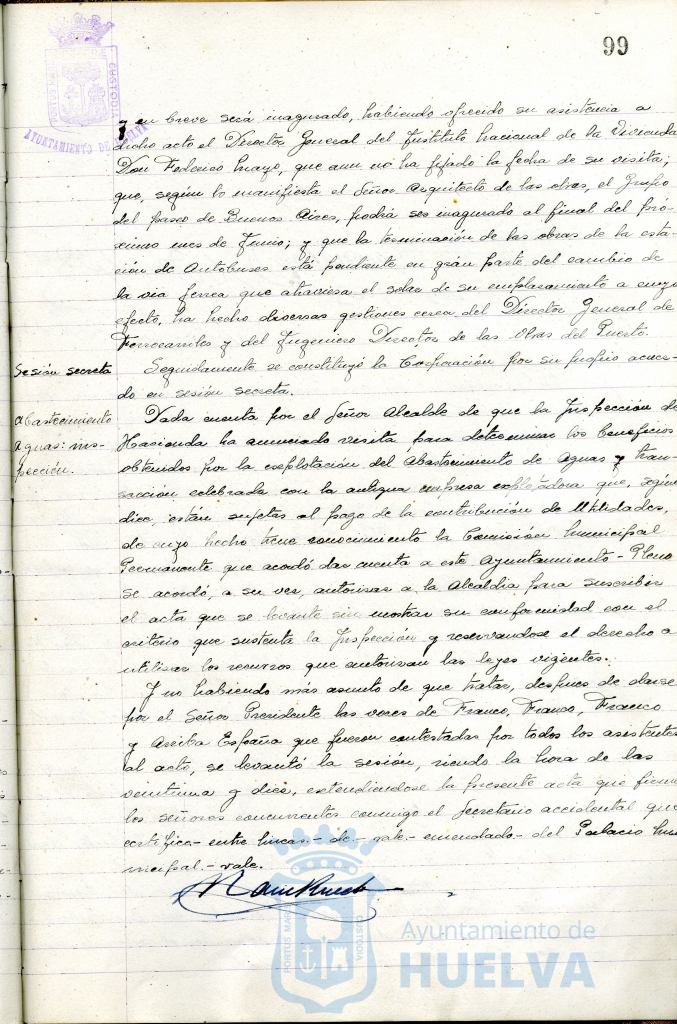 99
PORTUS MARIS CUSTODIA
AYUNTAMIENTO DE HUELVA
y en breve será inagurado, habiendo ofrecido su asistencia a
dicho acto el Director General del Instituto Nacional de la Vivienda
Don Federico Mayo, que aun no ha fijado la fecha de su visita;
que, según lo manifiesta el Señor Arquitecto de las obras, el Grupo
del paseo de Buenos Aires, podrá ser inagurado al final del pró-
ximo mes de Junio; y que la terminación de las obras de la esta-
ción de Autobuses está pendiente en gran parte del cambio de
la via ferrea que atraviesa el solar de su emplazamiento a cuyo
efecto, ha hecho diversas gestiones cerca del Director General de
Ferrocarriles y del Ingeniero Director de las Obras del Puerto.
Sesión secreta
Seguidamente se constituyó la Corporación por su propio acuer-
do en sesión secreta.
Abastecimiento
Aguas: ins-
pección.
Dada cuenta por el Señor Alcalde de que la Inspección de
Hacienda ha anunciado visita para determinar los beneficios
obtenidos por la explotación del Abastecimiento de Aguas y tran-
sacción celebrada con la antigua empresa explotadora que, según
dice, están sujetas al pago de la contribución de Utilidades,
de cuyo hecho tiene conocimiento la Comisión Municipal
Permanente que acordó dar cuenta a este Ayuntamiento-Pleno
se acordó, a su vez, autorizar a la Alcaldía para suscribir
el acta que se levante sin mostrar su conformidad con el
criterio que sustenta la Inspección y reservandose el derecho a
utilizar los recursos que autorizan las leyes vigentes.
Y no habiendo más asunto de que tratar, despues de darse
por el Señor Presidente las voces de Franco, Franco, Franco
y Arriba España que fueron contestadas por todos los asistentes
al acto, se levantó la sesión, siendo la hora de las
veintiuna y diez, extendiendose la presente acta que firman
los señores concurrentes conmigo el Secretario accidental que
certifico.- entre lineas.- de.- vale.- enmendado.- del Palacio Mu-
nicipal.- vale.
PORTUS MARIS CUSTODIA
Ayuntamiento de
HUELVA